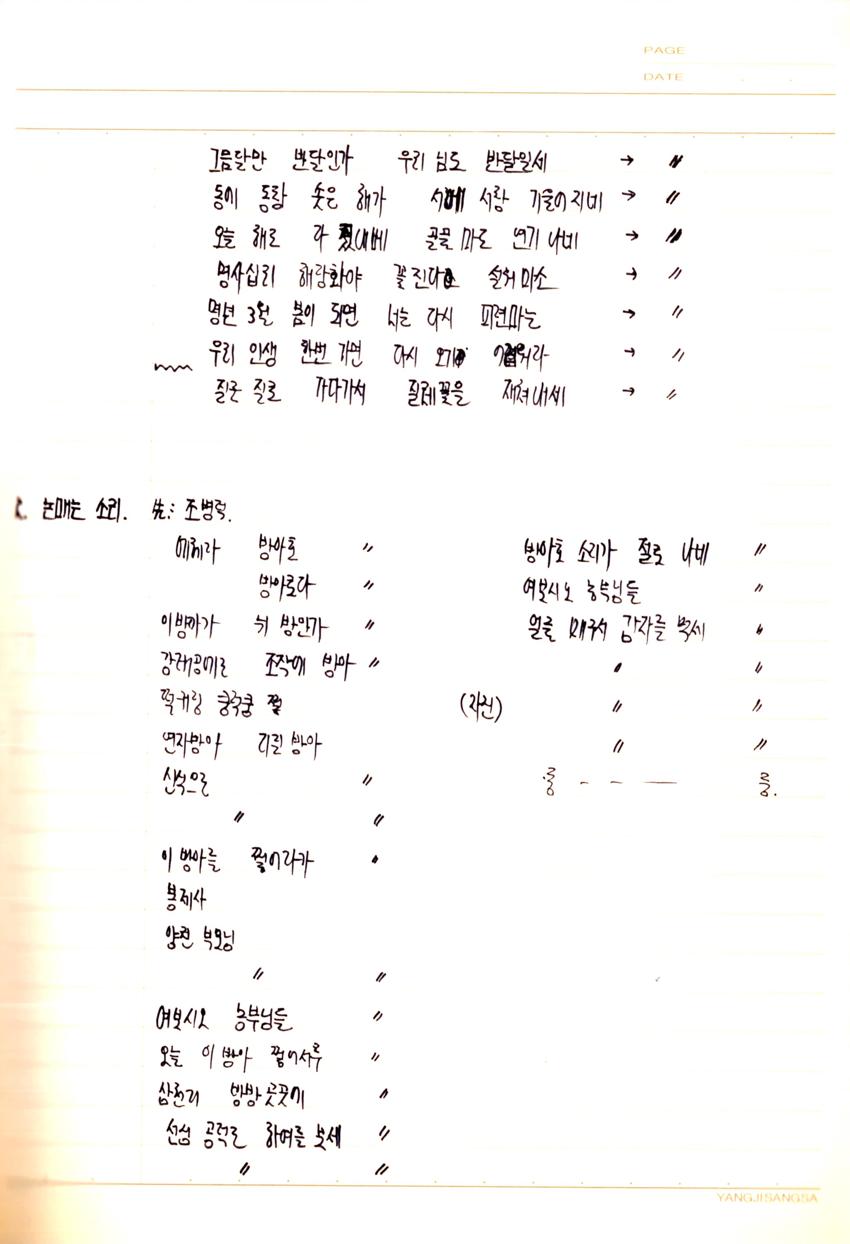 PAGE
DATE
그믐달만 반달인가 우리 님도 반달일세 → 〃
동에 동창 솟은 해가 서창 기울어지네 → 〃
오늘 해도 다 골골마도 연기 나네 → 〃
명사십리 해당화야 꽃진다 설워마소 → 〃
명년 3월 봄이 되면 너는 다시 피련마는 → 〃
우리 인생 한번 가면 다시 오기 → 〃
질군 질로 가다가서 찔레꽃을 재쳐내세 → 〃
논매는 소리. 先: 조병력.
에헤라 방아호 〃
방아로다 〃
이방아가 뉘 방인가 〃
강태공에 조작에 방아 〃
쿵쿵쿵
연자방아 디린 방아
신식으로 〃
〃 〃
이 방아를 찧어라가 〃
봉제사
양친 부모님
〃 〃
여보시오 농부님들 〃
오늘 이 방아 찧어서루 〃
삼천리 방방곳곳이 〃
선심 공덕을 하여를 보세 〃
〃 〃
방아호 소리가 절로 나네 〃
여보시오 농부님들 〃
얼른 매구서 감자를 먹세 〃
〃 〃
(자진) 〃 〃
〃 〃
YANGJISANGSA